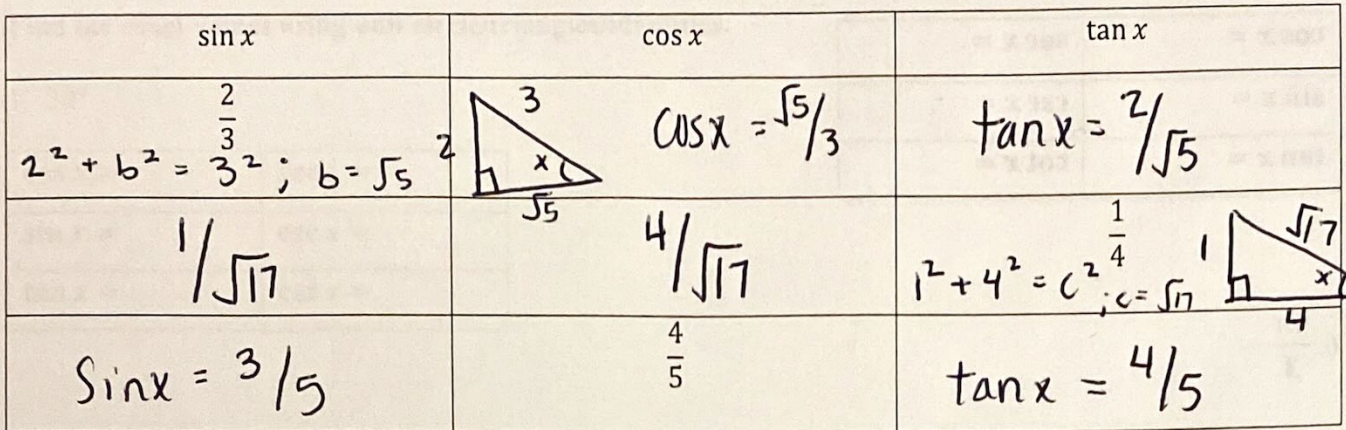 sin x
cos x
tan x
2/3
2² + b² = 3² ; b = √5
2
3
x
√5
cosx = √5/3
tanx = 2/√5
1/√17
4/√17
1/4
1² + 4² = c² ; c = √17
1
√17
x
4
Sinx = 3/5
4/5
tanx = 4/5